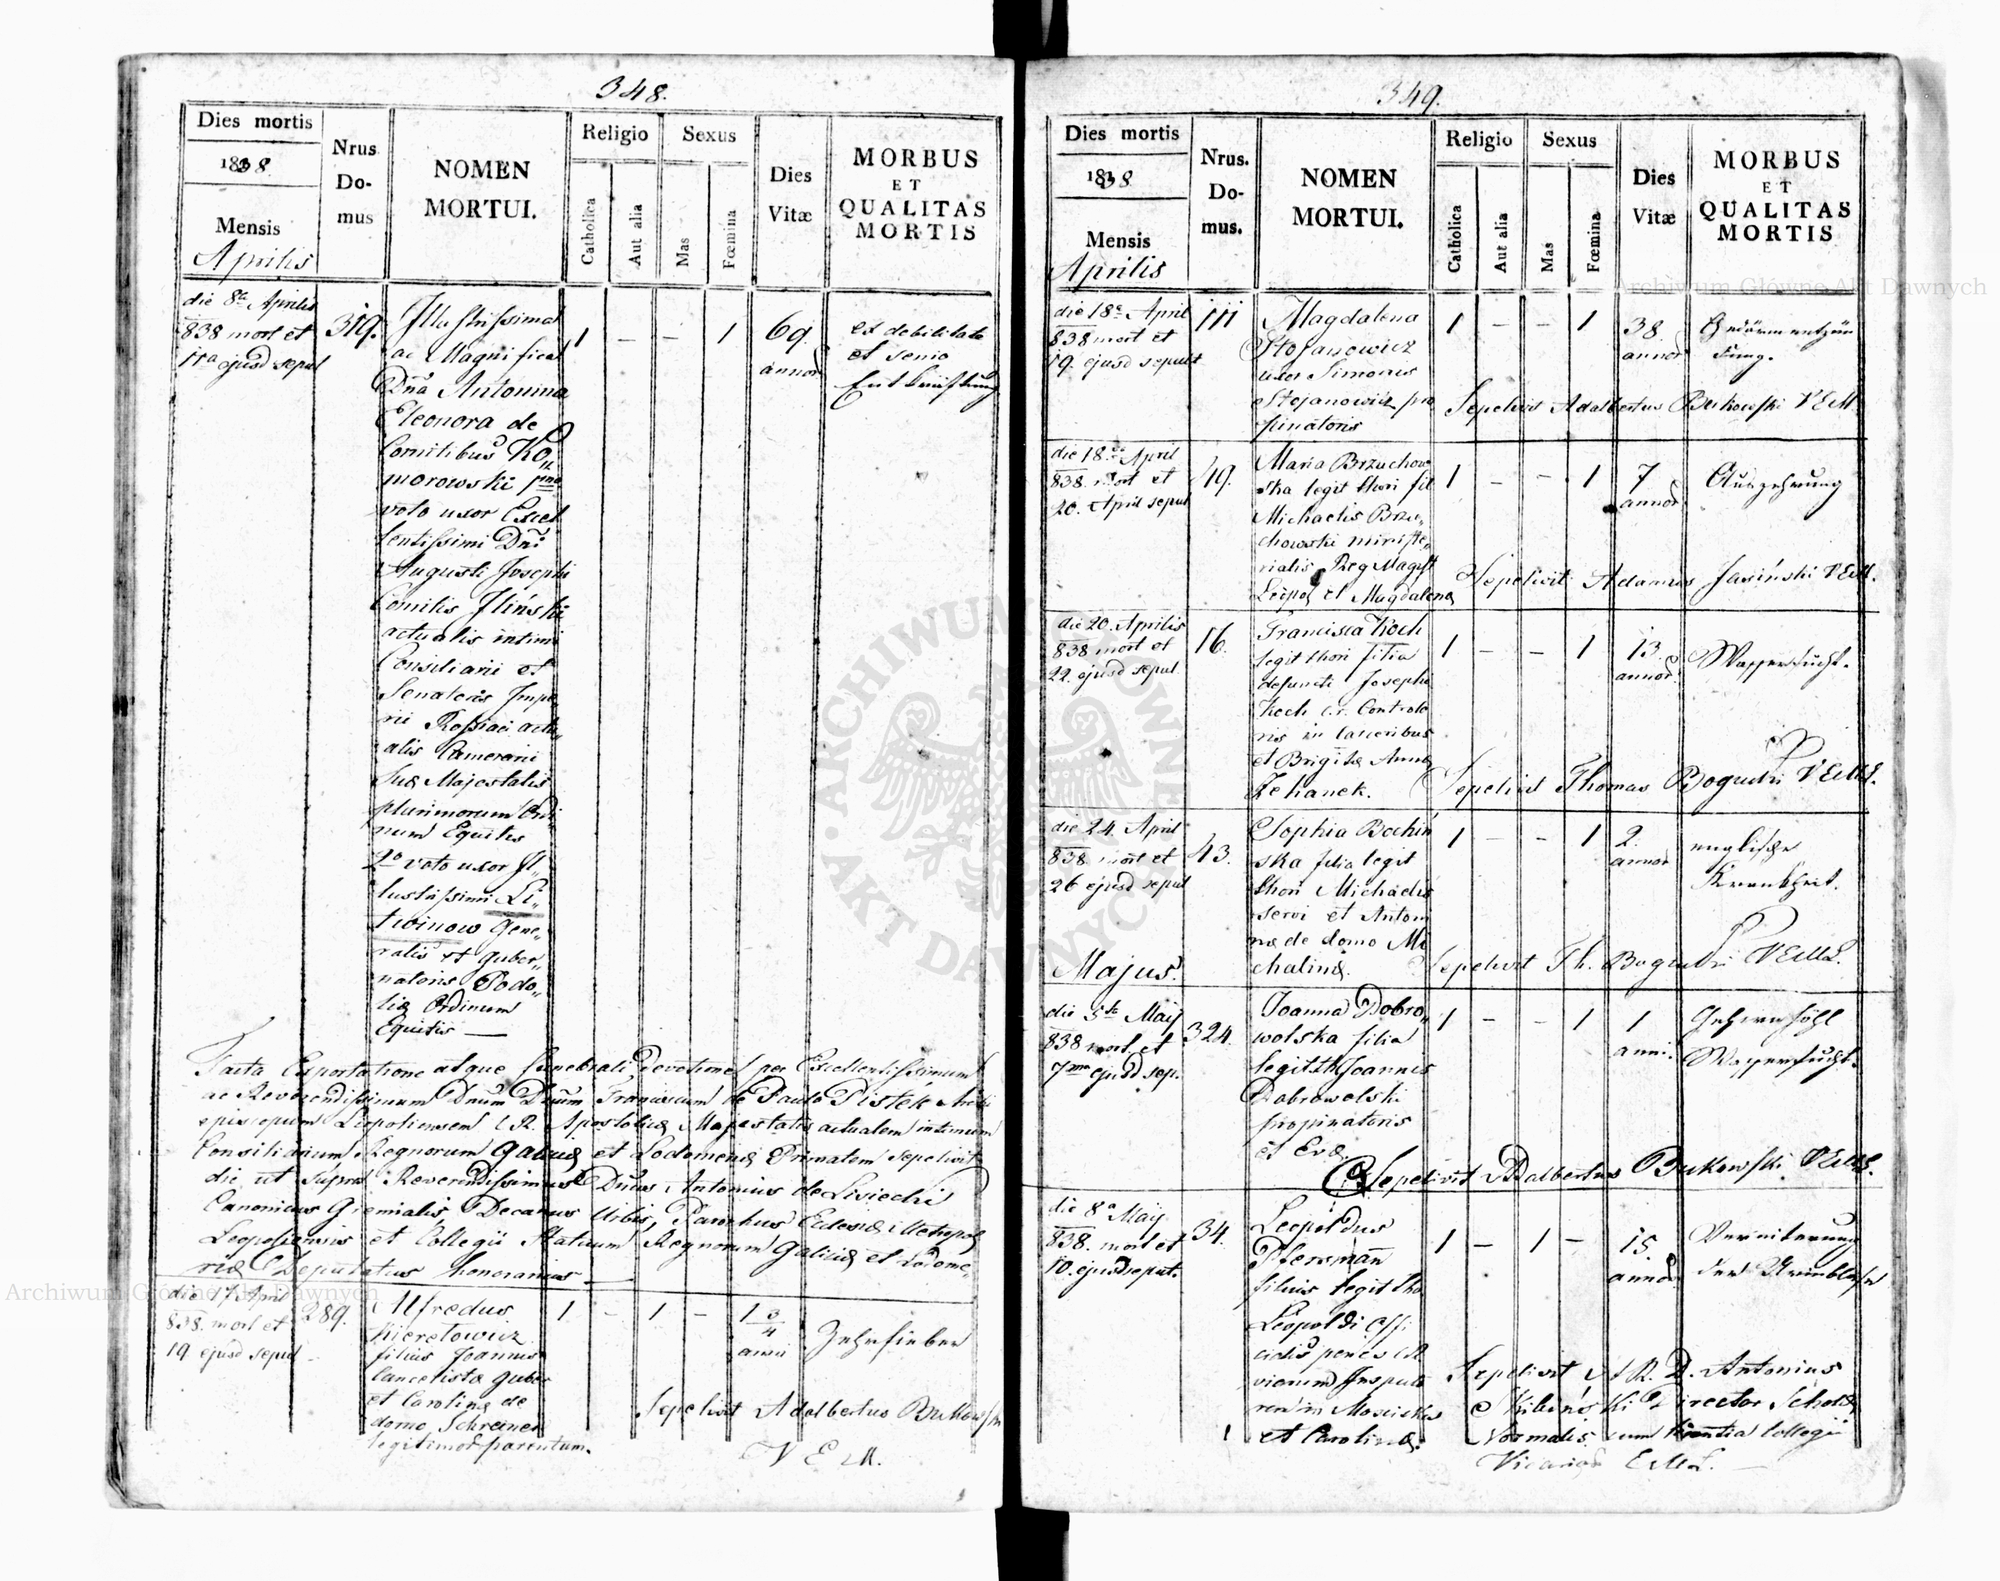 348.
Dies mortis
1838
Mensis
Aprilis
Nrus
Do-
mus
NOMEN
MORTUI.
Religio
Catholica
Aut alia
Sexus
Mas
Fœmina
Dies
Vitæ
MORBUS
ET
QUALITAS
MORTIS
die 8a Aprilis
838 mort et
11a ejusd sepul
319.
Illustrissima
ac Magnifica
Dna Antonina
Eleonora de
Comitibus Ko„
morowski
voto uxor Excel
lentissimi Dni
Augusti Josephi
Comitis Iliński
actualis intimi
Consiliarii et
Senatoris Impe
rii Rossiaci actu„
alis Camerarii
Suæ Majestatis
plurimorum Ordi
num Equitis
2o voto uxor Il„
lustrissimi Li„
twinow Gene„
ralis et guber„
natoris Podo„
liæ Ordinum
Equitis —
1 — — 1
69
annor
ex debilitate
et senio
Entkräftung
Facta Exportatione atque funebrali Devotione per Excellentissimum
ac Reverendissimum Dnum Dnum Franciscum de Paula Pistek Archi
episcopum Leopoliensem C.R. Apostolicæ Majestatis actualem intimum
Consiliarium Regnorum Galiciæ et Lodomeriæ Primatem sepelivit
die ut supra Reverendissimus Dnus Antonius de Liviecki
Canonicus Gremialis Decanus Urbis, Parochus Ecclesiæ Metropol
Leopoliensis et Collegii Statuum Regnorum Galiciæ et Lodome„
riæ Deputatus honorarius —
die 17 April
838. mort et
19 ejusd sepul
289.
Alfredus
Kieretowicz
filius Joannis
Cancelistæ guber
et Carolinæ de
domo Schreiner
legitimor parentum.
1 – 1 –
1 3/4
anni
Zehrfieber
Sepelivit Adalbertus Bukowski
V E M.
349.
Dies mortis
1838
Mensis
Aprilis
Nrus.
Do-
mus.
NOMEN
MORTUI.
Religio
Catholica
Aut alia
Sexus
Mas
Fœmina
Dies
Vitæ
MORBUS
ET
QUALITAS
MORTIS
die 18a April
838 mort et
19. ejusd sepult
111
Magdalena
Stojanowicz
uxor Simonis
Stojanowicz pro
pinatoris
1 – – 1
38.
annor
Gedärmentzün
dung.
Sepelivit Adalbertus Bukowski VEM
die 18. April
838. mort et
20. April sepul
419.
Maria Brzuchow
ska legit thori fil
Michaelis Brzu„
chowski ministe„
rialis Reg Magist
Leopol et Magdalenæ
1 – – 1
7
annor
Auszehrung
Sepelivit Adamus Jasiński VEM.
die 20. Aprilis
838 mort et
22. ejusd sepul
16.
Francisca Koch
legit thori filia
defuncti Josephi
Koch c.r. Controlo
ris in carceribus
et Brigitæ Annæ
Zehanek.
1 – – 1
13.
annor
Wassersucht.
Sepelivit Thomas Bogucki VEML.
die 24. April
838. mort et
26 ejusd sepul
43.
Sophia Bochiń
ska filia legit
thori Michaelis
servi et Anton
næ de domo Mi
chalina.
1 – – 1
2.
annor
englische
Krankheit.
Sepelivit Th. Bogucki VEML.
Majus.
die 5ta Maij
838 mort. et
7ma ejusd sep.
324.
Joanna Dobro„
wolska filia
legit th Joannis
Dobrowolski
propinatoris
et Evæ.
1 – – 1
1
anni.
Gehirnhöhl
Wassersucht.
Sepelivit Adalbertus Bukowski VEML.
die 8a Maij
838. mort et
10. ejusd sepult.
34.
Leopoldus
Pfersmann
filius legit tho
Leopoldi offi
cialis penes CR
viarum Inspecto
ren in Mosciska
et Carolinæ.
1 – 1 –
15.
annor
Vereiterung
der Urinblase
Sepelivit R. D. Antonius
Skibiński Director Schola
Normalis cum licentia Collegii
Vicarior EML. —
Archiwum Główne Akt Dawnych
Archiwum Główne Akt Dawnych
ARCHIWUM GŁÓWNE AKT DAWNYCH